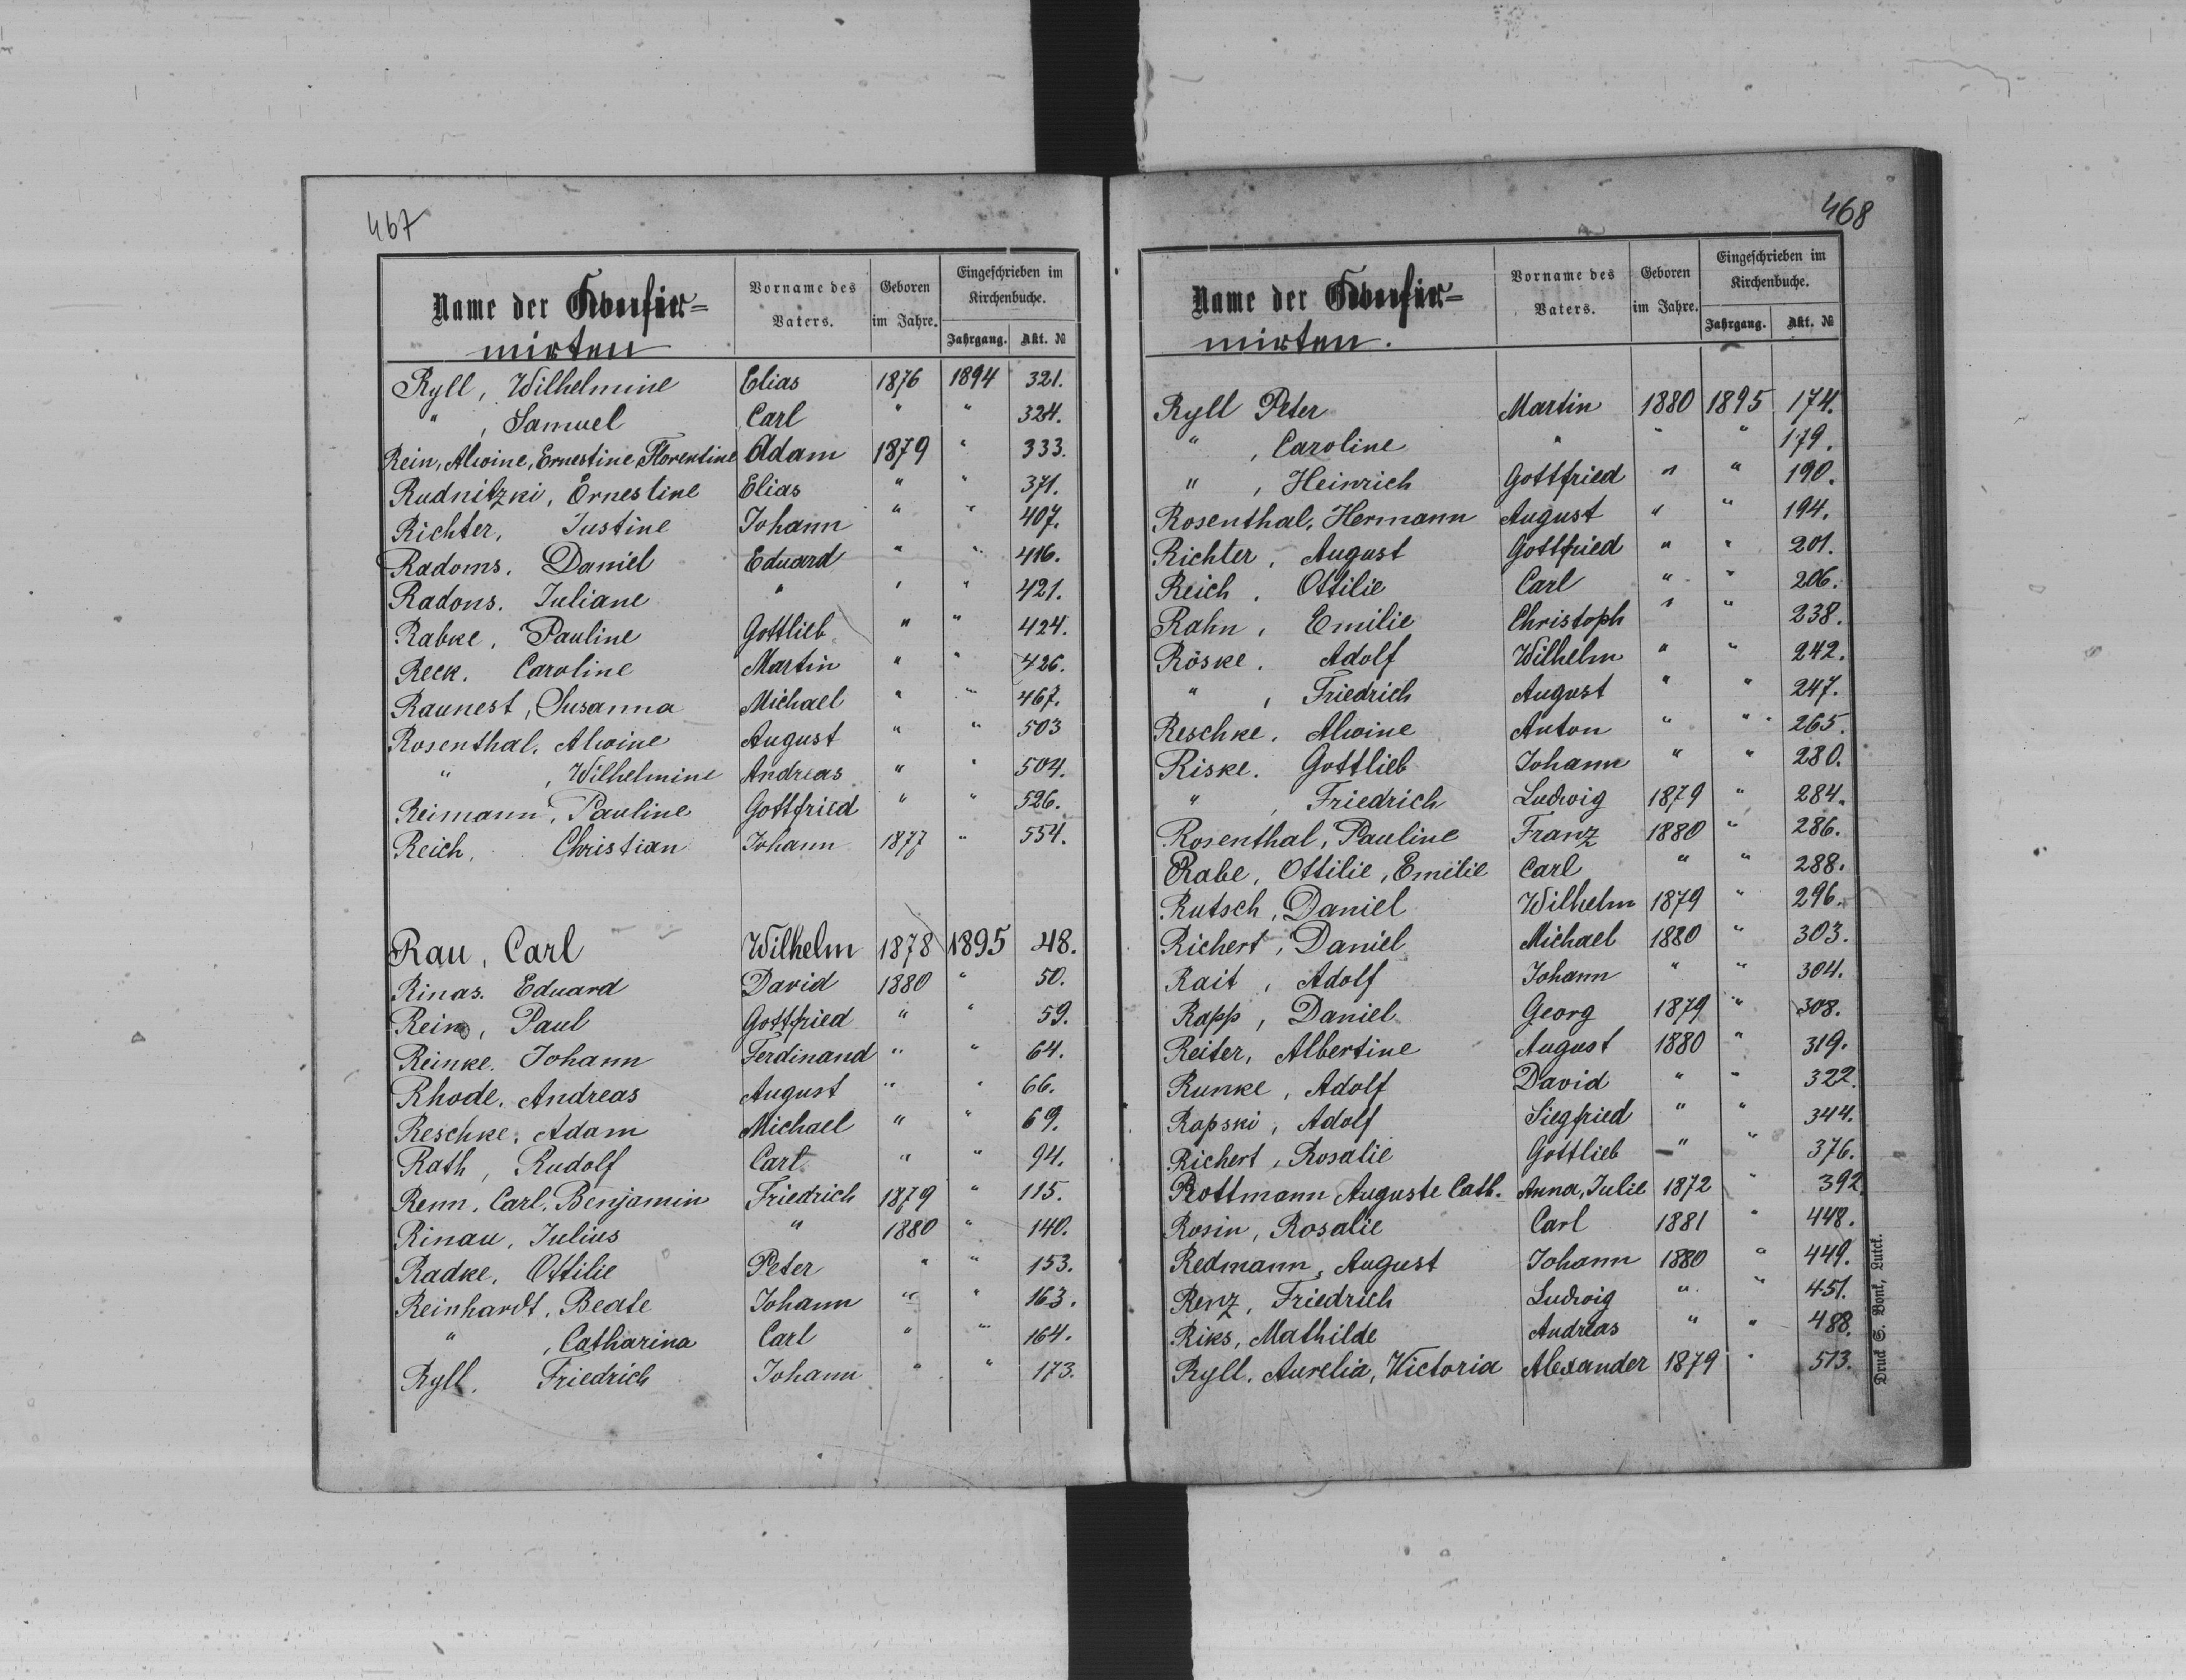 467
Name der Confir=
mirten
Vorname des Vaters.
Geboren im Jahre.
Eingeschrieben im Kirchenbuche.
Jahrgang. Akt. №
Ryll, Wilhelmine Elias 1876 1894 321.
" , Samuel Carl " " 324.
Rein, Alwine, Ernestine Florentine Adam 1879 " 333.
Rudnitzki, Ernestine Elias " " 371.
Richter, Justine Johann " " 407.
Radoms. Daniel Eduard " " 416.
Radons. Juliane " " " 421.
Rabke, Pauline Gottlieb " " 424.
Reck. Caroline Martin " " 426.
Raunest, Susanna Michael " " 467.
Rosenthal, Alwine August " " 503
" , Wilhelmine Andreas " " 504.
Reimann, Pauline Gottfried " " 526.
Reich, Christian Johann 1877 " 554.
Rau, Carl Wilhelm 1878 1895 48.
Rinas. Eduard David 1880 " 50.
Rein, Paul Gottfried " " 59.
Reinke. Johann Ferdinand " " 64.
Rhode. Andreas August " " 66.
Reschke, Adam Michael " " 69.
Rath, Rudolf Carl " " 94.
Renn, Carl, Benjamin Friedrich 1879 " 115.
Rinau, Julius " 1880 " 140.
Radke, Ottilie Peter " " 153.
Reinhardt, Beate Johann " " 163.
" , Catharina Carl " " 164.
Ryll, Friedrich Johann " " 173.
468
Name der Confir=
mirten.
Vorname des Vaters.
Geboren im Jahre.
Eingeschrieben im Kirchenbuche.
Jahrgang. Akt. №
Ryll Peter Martin 1880 1895 174.
" , Caroline " " " 179.
" , Heinrich Gottfried " " 190.
Rosenthal, Hermann August " " 194.
Richter, August Gottfried " " 201.
Reich, Ottilie Carl " " 206.
Rahn, Emilie Christoph " " 238.
Röske, Adolf Wilhelm " " 242.
" , Friedrich August " " 247.
Reschke, Alwine Anton " " 265.
Riske. Gottlieb Johann " " 280.
" , Friedrich Ludwig 1879 " 284.
Rosenthal, Pauline Franz 1880 " 286.
Rabe, Ottilie, Emilie Carl " " 288.
Rutsch, Daniel Wilhelm 1879 " 296.
Richert, Daniel Michael 1880 " 303.
Rait, Adolf Johann " " 304.
Rapp, Daniel Georg 1879 " 308.
Reiter, Albertine August 1880 " 319.
Runke, Adolf David " " 322.
Rapski, Adolf Siegfried " " 344.
Richert, Rosalie Gottlieb " " 376.
Rottmann Auguste Cath. Anna, Julie 1872 " 392.
Rosin, Rosalie Carl 1881 " 448.
Redmann, August Johann 1880 " 449.
Renz, Friedrich Ludwig " " 451.
Riks, Mathilde Andreas " " 488.
Ryll. Aurelia, Victoria Alexander 1879 " 513.
Druck S. Bonk, Lutck.